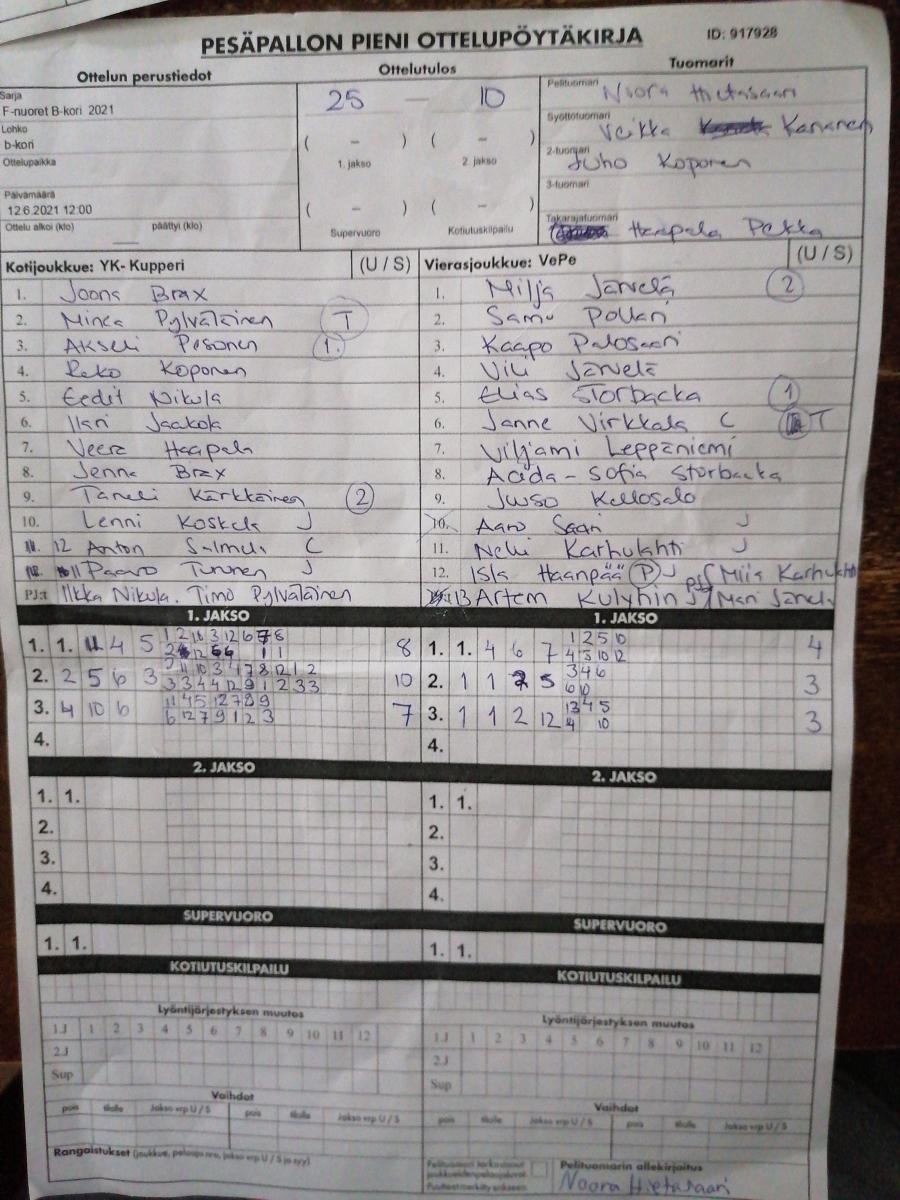 PESÄPALLON PIENI OTTELUPÖYTÄKIRJA
ID: 917928
Ottelun perustiedot
Ottelutulos
Tuomarit
Sarja
F-nuoret B-kori 2021
Lohko
b-kori
Ottelupaikka
Päivämäärä
12.6.2021 12:00
Ottelu alkoi (klo) päättyi (klo)
25 – 10
( – ) ( – )
1. jakso 2. jakso
( – ) ( – )
Supervuoro Kotiutuskilpailu
Pelituomari Noora Hietasaari
Syöttötuomari Veikka Kananen
2-tuomari Juho Koponen
3-tuomari
Takarajatuomari Haapala Pekka
Kotijoukkue: YK- Kupperi (U / S)
1. Joona Brax
2. Minea Pylväläinen T
3. Akseli Pesonen 1.
4. Reko Koponen
5. Eedit Nikula
6. Ilari Jaakola
7. Veera Haapala
8. Jenna Brax
9. Taneli Kärkkäinen 2
10. Lenni Koskela J
12 Anton Salmela C
11 Paavo Turunen J
PJ:t Ilkka Nikula. Timo Pylväläinen
Vierasjoukkue: VePe (U / S)
1. Milja Järvelä 2
2. Samu Pollari
3. Kaapo Palosaari
4. Vili Järvelä
5. Elias Storbacka 1
6. Janne Virkkala C T
7. Viljami Leppäniemi
8. Aada-Sofia Storbacka
9. Juuso Kellosalo
10. Aaro Saari J
11. Neli Karhulahti J
12. Isla Haanpää P J Miia Karhulahti
13 Artem Kulyhin J Mari Järvelä
1. JAKSO
1. 1. 4 5 8
2. 2 5 6 3 10
3. 4 10 6 7
4.
1. JAKSO
1. 1. 4 6 7 1 2 5 10 4
4 5 10 12
2. 1 1 2 5 3 4 6 3
6 10
3. 1 1 2 12 13 4 5 3
4 10
4.
2. JAKSO
1. 1.
2.
3.
4.
2. JAKSO
1. 1.
2.
3.
4.
SUPERVUORO
1. 1.
SUPERVUORO
1. 1.
KOTIUTUSKILPAILU
KOTIUTUSKILPAILU
Lyöntijärjestyksen muutos
1J 1 2 3 4 5 6 7 8 9 10 11 12
2J
Sup
Lyöntijärjestyksen muutos
1J 1 2 3 4 5 6 7 8 9 10 11 12
2J
Sup
Vaihdot
pois tilalle Jakso vrp U / S pois tilalle Jakso vrp U / S
Vaihdot
pois tilalle Jakso vrp U / S pois tilalle Jakso vrp U / S
Rangaistukset (joukkue, pelaaja nro, jakso vrp U / S ja syy)
Pelituomarin allekirjoitus
Noora Hietasaari